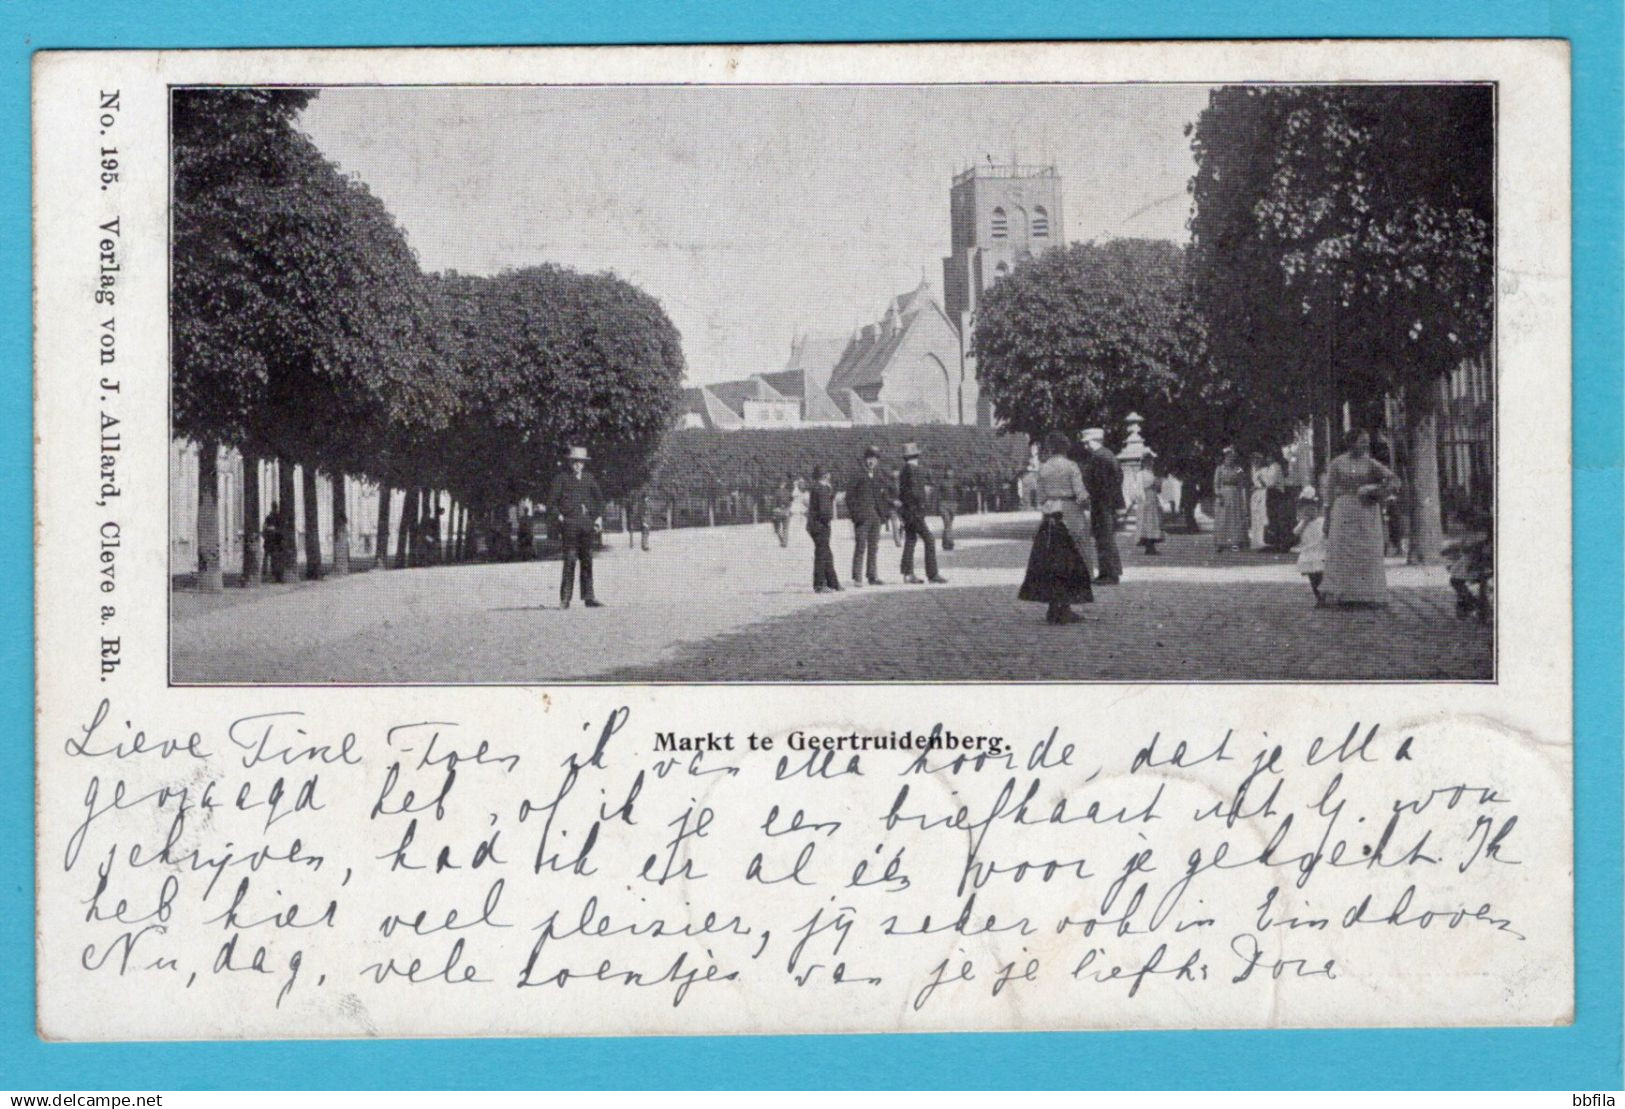 No. 195. Verlag von J. Allard, Cleve a. Rh.
Markt te Geertruidenberg.
Lieve Tine Toen ik van Ella hoorde, dat je Ella
gevraagd heb, of ik je een briefkaart uit G. wou
schrijven, had ik er al één voor je gekocht. Ik
heb hier veel pleisier, jij zeker ook in Eindhoven
Nu, dag, vele zoentjes van je je liefh. Dora
bbfila